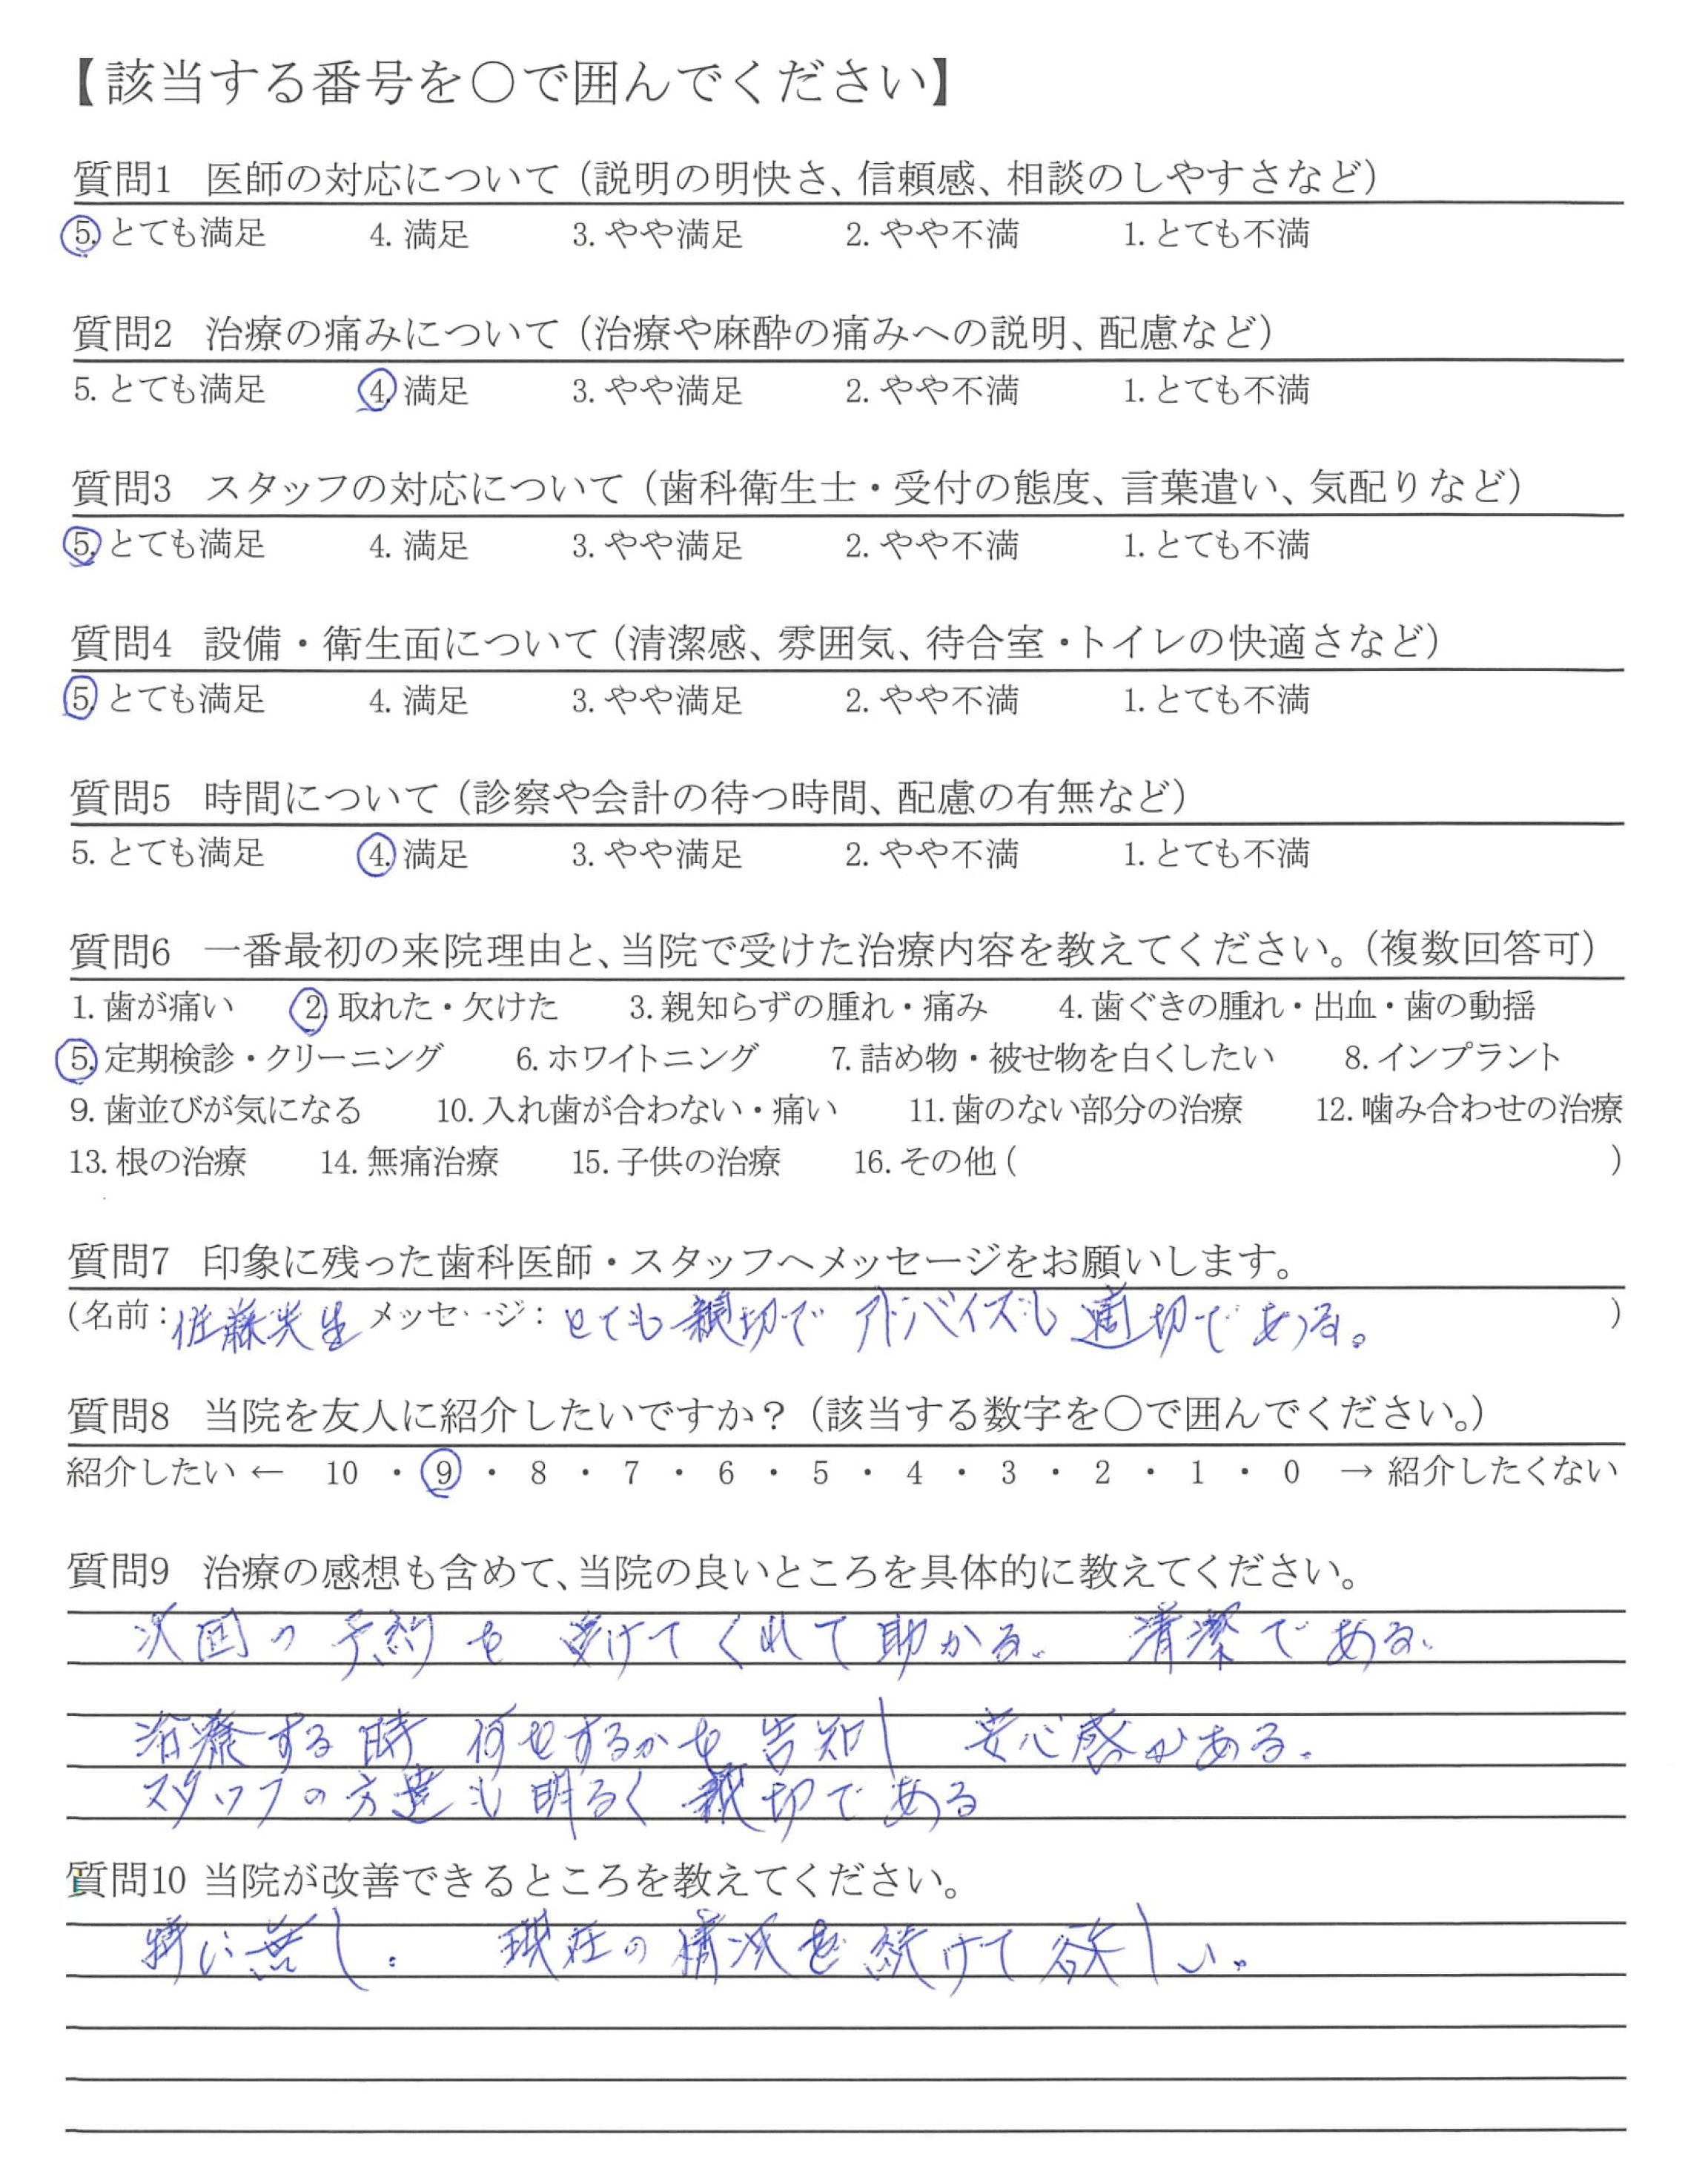 【該当する番号を○で囲んでください】
質問1 医師の対応について（説明の明快さ、信頼感、相談のしやすさなど）
5. とても満足 4. 満足 3. やや満足 2. やや不満 1. とても不満
質問2 治療の痛みについて（治療や麻酔の痛みへの説明、配慮など）
5. とても満足 4. 満足 3. やや満足 2. やや不満 1. とても不満
質問3 スタッフの対応について（歯科衛生士・受付の態度、言葉遣い、気配りなど）
5. とても満足 4. 満足 3. やや満足 2. やや不満 1. とても不満
質問4 設備・衛生面について（清潔感、雰囲気、待合室・トイレの快適さなど）
5. とても満足 4. 満足 3. やや満足 2. やや不満 1. とても不満
質問5 時間について（診察や会計の待つ時間、配慮の有無など）
5. とても満足 4. 満足 3. やや満足 2. やや不満 1. とても不満
質問6 一番最初の来院理由と、当院で受けた治療内容を教えてください。（複数回答可）
1. 歯が痛い 2. 取れた・欠けた 3. 親知らずの腫れ・痛み 4. 歯ぐきの腫れ・出血・歯の動揺
5. 定期検診・クリーニング 6. ホワイトニング 7. 詰め物・被せ物を白くしたい 8. インプラント
9. 歯並びが気になる 10. 入れ歯が合わない・痛い 11. 歯のない部分の治療 12. 噛み合わせの治療
13. 根の治療 14. 無痛治療 15. 子供の治療 16. その他（ ）
質問7 印象に残った歯科医師・スタッフへメッセージをお願いします。
（名前：佐藤先生 メッセージ：とても親切で アドバイスも 適切である。）
質問8 当院を友人に紹介したいですか？（該当する数字を○で囲んでください。）
紹介したい ← 10 ・ 9 ・ 8 ・ 7 ・ 6 ・ 5 ・ 4 ・ 3 ・ 2 ・ 1 ・ 0 → 紹介したくない
質問9 治療の感想も含めて、当院の良いところを具体的に教えてください。
次回の予約も受けてくれて助かる。 清潔である。
治療する時 何をするかも告知し 安心感がある。
スタッフの方達も明るく親切である
質問10 当院が改善できるところを教えてください。
特に無し。 現在の情況を続けて欲しい。